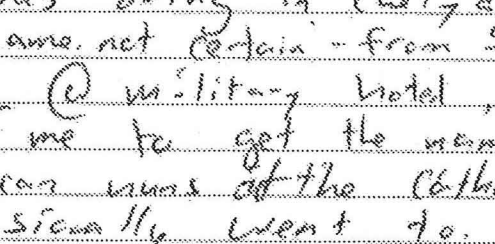 ame. not certain - from
@ military hotel,
me to get the nam
can nuns at the Cath
sically went to.